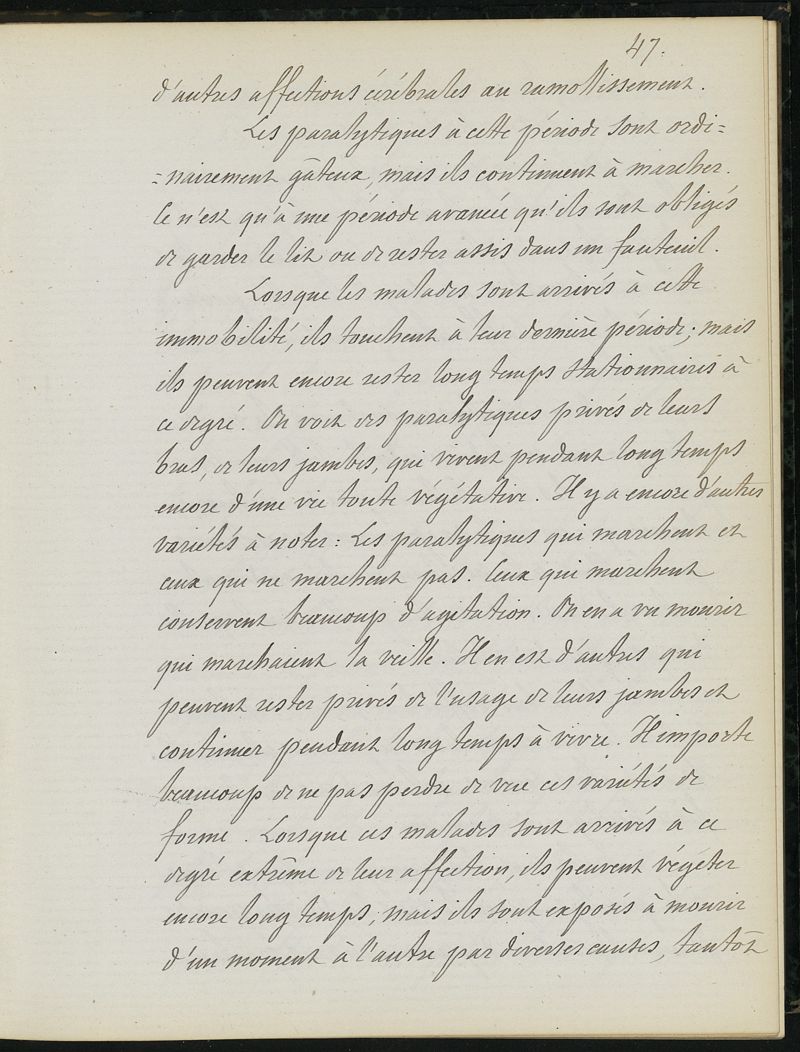 47.
d'autres affections cérébrales au ramollissement.
Les paralytiques à cette période sont ordi=
=nairement gâteux, mais ils continuent à marcher.
Ce n'est qu'à une période avancée qu'ils sont obligés
de garder le lit ou de rester assis dans un fauteuil.
Lorsque les malades sont arrivés à cette
immobilité, ils touchent à leur dernière période; mais
ils peuvent encore rester long temps stationnaires à
ce degré. On voit des paralytiques privés de leurs
bras, de leurs jambes, qui vivent pendant long temps
encore d'une vie toute végétative. Il y a encore d'autres
variétés à noter: Les paralytiques qui marchent et
ceux qui ne marchent pas. Ceux qui marchent
conservent beaucoup d'agitation. On en a vu mourir
qui marchaient la veille. Il en est d'autres qui
peuvent rester privés de l'usage de leurs jambes et
continuer pendant long temps à vivre. Il importe
beaucoup de ne pas perdre de vue ces variétés de
forme. Lorsque ces malades sont arrivés à ce
degré extrême de leur affection, ils peuvent végéter
encore long temps, mais ils sont exposés à mourir
d'un moment à l'autre par diverses causes, tantôt